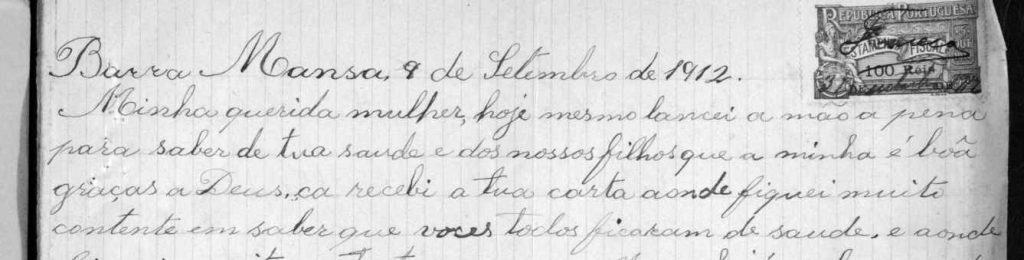 REPUBLICA PORTUGUESA
ESTAMPILHA FISCAL
100 Réis
Barra Mansa, 9 de Setembro de 1912.
Minha querida mulher, hoje mesmo lancei a mão a pena
para saber de tua saude e dos nossos filhos que a minha é boã
graças a Deus, ca recebi a tua carta aonde fiquei muito
contente em saber que voces todos ficaram de saude, e aonde